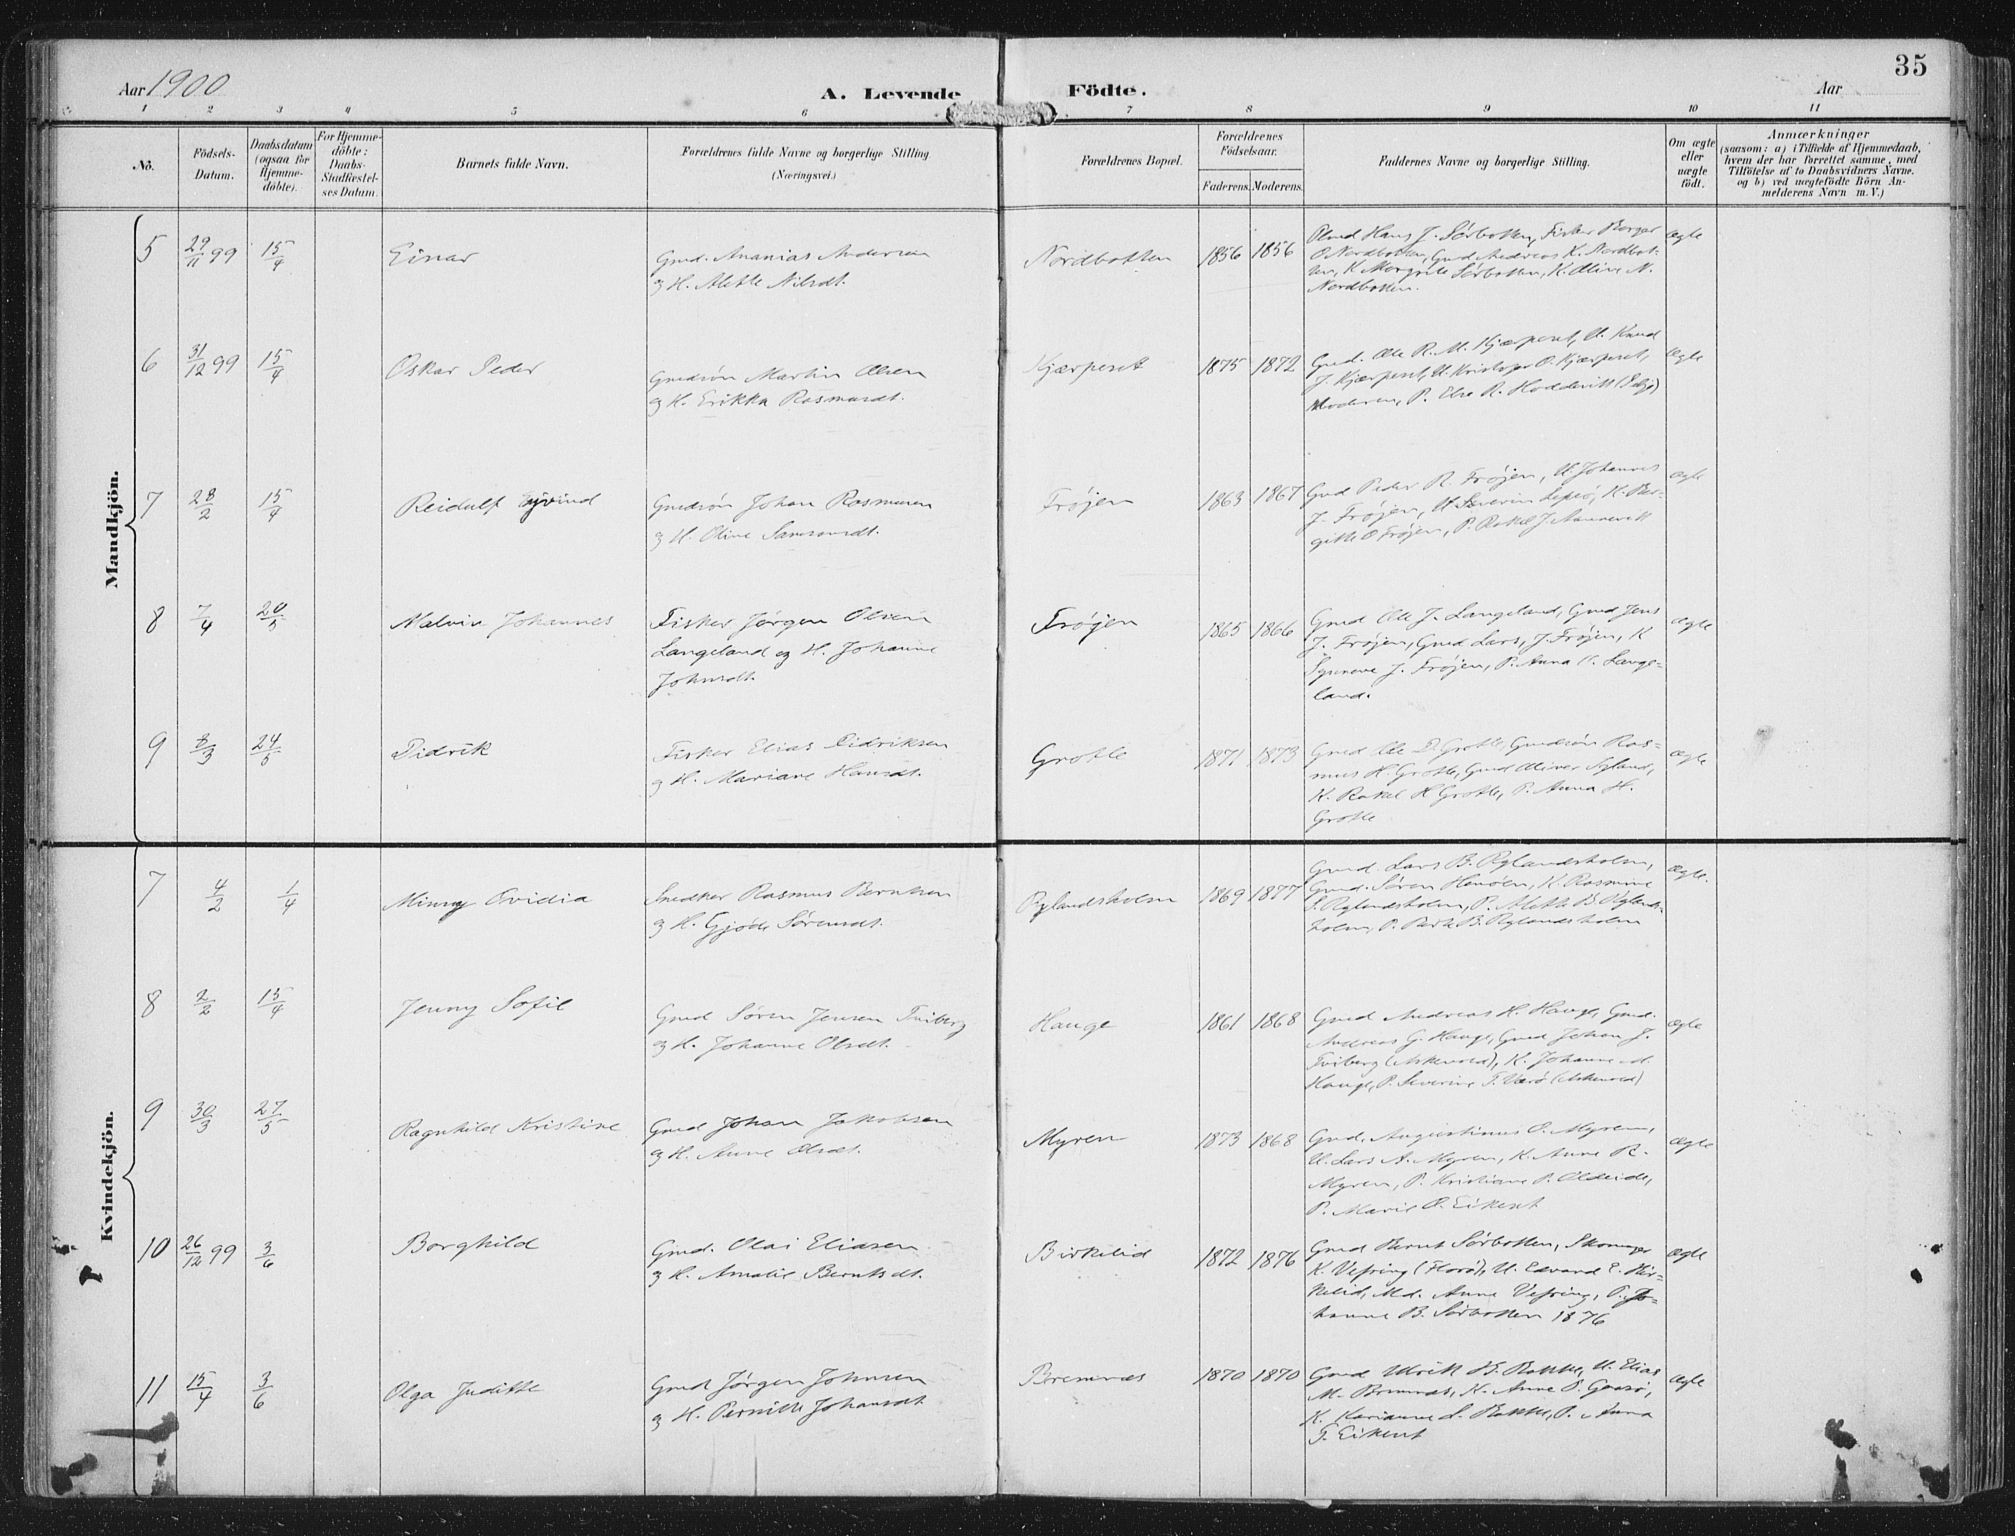 35
Aar 1900
A. Levende
Födte.
Aar
1 2 3 4 5 6 7 8 9 10 11
No.
Födsels-Datum.
Daabsdatum (ogsaa for Hjemme-döbte).
For Hjemme-döbte: Daabs-Stadfæstel-ses Datum.
Barnets fulde Navn.
Forældrenes fulde Navne og borgerlige Stilling
(Næringsvei.)
Forældrenes Bopæl.
Forældrenes Födselsaar.
Faderens. Moderens.
Faddernes Navne og borgerlige Stilling.
Om ægte eller uægte födt.
Anmærkninger
(saasom: a) i Tilfælde af Hjemmedaab,
hvem der har forrettet samme, med
Tilföielse af to Daabsvidners Navne.
og b) ved uægtefödte Börn An-
melderens Navn m. V.)
Mandkjön.
5 29/11 99 15/4 Einar Gmd. Ananias Andersen Nordbotten 1856 1856 Hans J. Sørbotten, Fisker Borger ægte
og H. Alette Nilsdt. O. Nordbotten, Gmd Andreas K. Nordbot-
ten, K. Sørbotten, K. Oline N.
Nordbotten.
6 31/12 99 15/4 Oskar Peder Gmdsøn Martin Olsen Kjærpeset 1875 1872 Gmd. Ole R. M. Kjærpeset, U. Knud ægte
og H. Erikka Rasmusdt. J. Kjærpeset, U. Kristofer O. Kjærpeset,
Moderen, P. Else R.
7 28/2 15/4 Reidulf Øyvind Gmdsøn Johan Rasmussen Frøjen 1863 1867 Gmd Peder R. Frøjen, U. Johannes ægte
og H. Oline Samsonsdt. J. Frøjen, U. Severin K. Ber-
gitte O Frøjen, P. Rakel J.
8 7/4 20/5 Malvin Johannes Fisker Jørgen Olsen Frøjen 1865 1866 Gmd Ole J. Langeland, Gmd Jens ægte
Langeland og H. Johanne J. Frøjen, Gmd Lars J. Frøjen, K
Johnsdt. Synneve J. Frøjen, P. Anna O. Lange-
land.
9 8/3 24/5 Didrik Fisker Elias Didriksen Grotle 1871 1873 Gmd Ole D. Grotle, Gmdsøn Ras- ægte
og H. Mariane Hansdt. mus H. Grotle, Gmd Oliver
K. Rakel H Grotle, P. Anna H.
Grotle
Kvindekjön.
7 4/2 1/4 Minny Ovidia Snedker Rasmus Berntsen Rylandsholm 1869 1877 Gmd. Lars B. Rylandsholm, ægte.
og H. Gjøde Sørensdt. Gmd. Søren K. Rasmine
S. Rylandsholm, P. Alette B. Rylands-
holm, P. B. Rylandsholm
8 2/2 15/4 Jenny Sofie Gmd Søren Jensen Tviberg Hauge 1861 1868 Gmd Andreas H. Hauge, Gmd. ægte
og H. Johanne Olsdt. Andreas G. Hauge, Gmd Johan J.
Tviberg (Askevold), K. Johanne A.
Hauge, P. Severine T. Værø (Askevold)
9 30/3 27/5 Ragnhild Kristine Gmd Johan Jakobsen Myren 1873 1868 Gmd. Augustinus O. Myren, ægte
og H. Anne Olsdt. U. Lars A. Myren, K. Anne R.
Myren, P. Kristiane P. Oldeide,
P. Marie O. Eikeset
10 26/12 99 3/6 Borghild Gmd. Olai Eliasen Birkelid 1872 1876 Gmd Bernt Sørbotten, Skomager ægte
og H. Amalie Berntsdt. K. Vefring (Florø), U. Edvard E. Bir-
kelid, Md. Anne Vefring, P. Jo-
hanne B. Sørbotten 1876
11 15/4 3/6 Olga Juditte Gmd Jørgen Johnsen Bremnæs 1870 1870 Gmd Ulrik H. Bakke, U. Elias ægte
og H. Pernille Johansdt. M. Bremnæs, K. Anne P. Gaasø,
K. Karianne L. Bakke, P. Anna
T. Eikeset